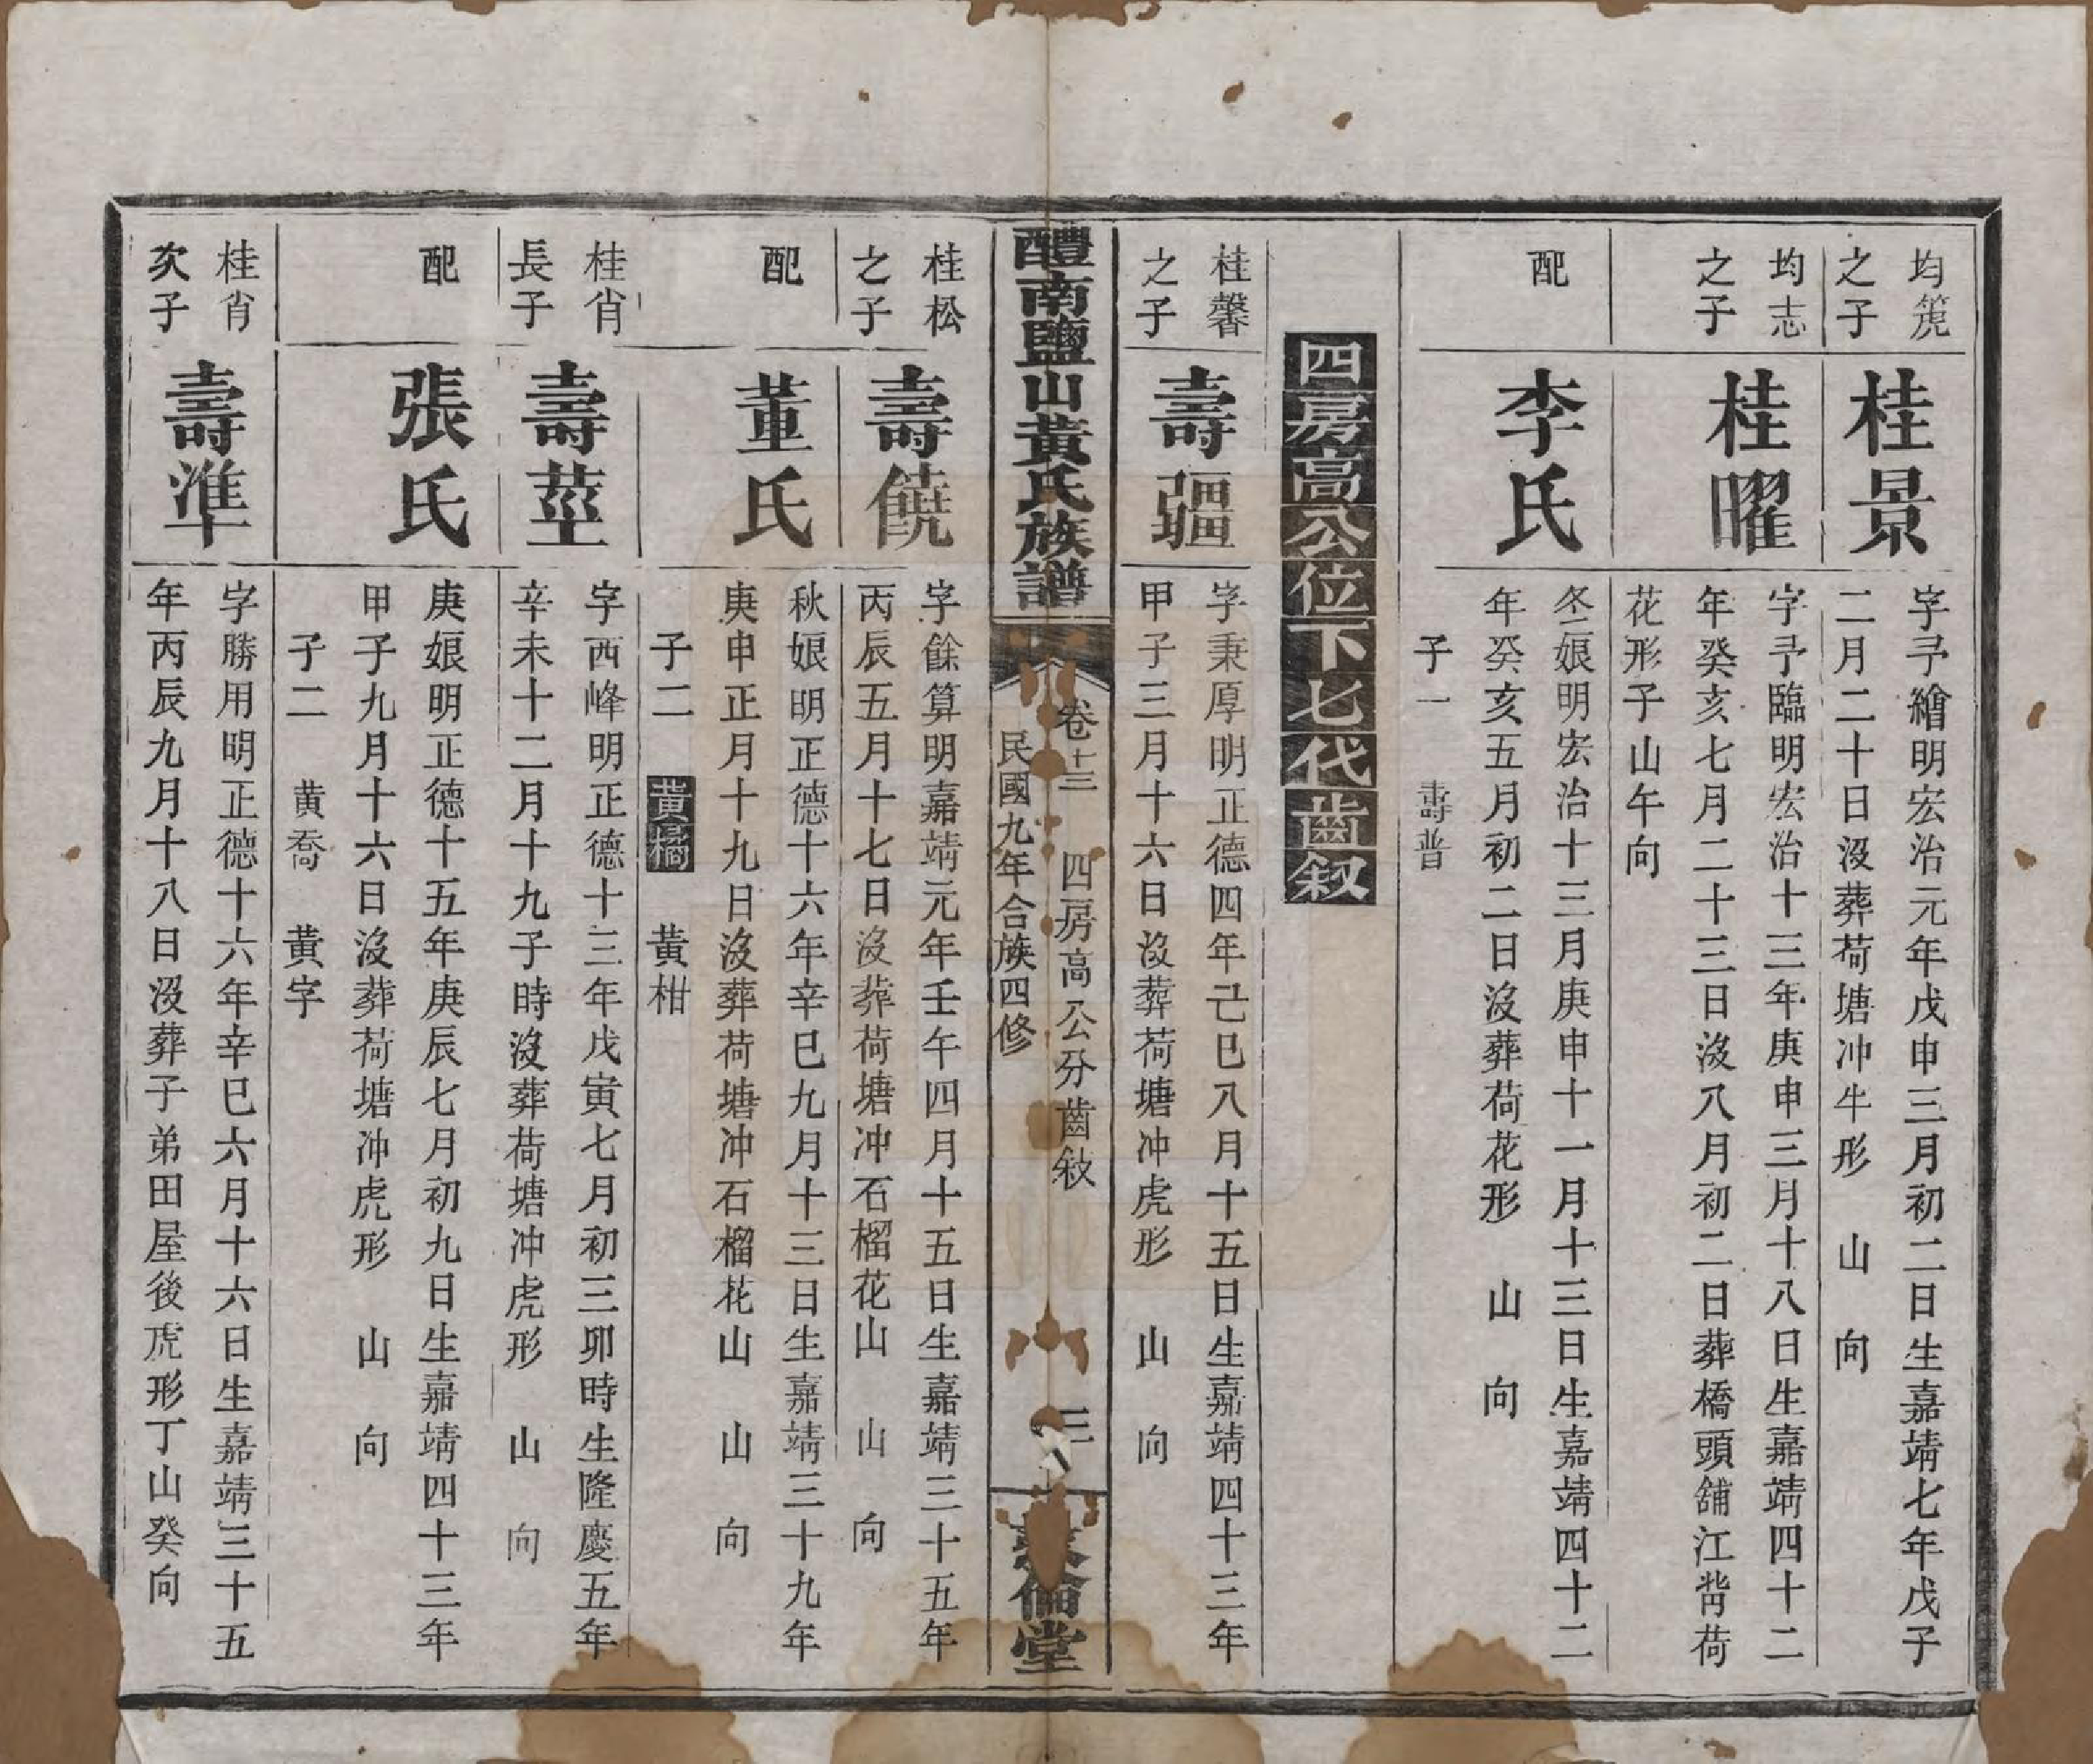 均箎
之子
桂景
字予繪明宏治元年戊申三月初二日生嘉靖七年戊子
二月二十日沒葬荷塘冲牛形 山 向
均志
之子
桂曜
字予臨明宏治十三年庚申三月十八日生嘉靖四十二
年癸亥七月二十三日沒八月初二日葬橋頭舖江背荷
花形子山午向
配
李氏
冬娘明宏治十三月庚申十一月十三日生嘉靖四十二
年癸亥五月初二日沒葬荷花形 山 向
子一 壽普
四房高公位下七代齒叙
桂馨
之子
壽疆
字秉厚明正德四年己巳八月十五日生嘉靖四十三年
甲子三月十六日沒葬荷塘冲虎形 山 向
醴南鹽山黃氏族譜
卷十三 四房高公分齒敘
民國九年合族四修
三
倫堂
桂松
之子
壽饒
字餘算明嘉靖元年壬午四月十五日生嘉靖三十五年
丙辰五月十七日沒葬荷塘冲石榴花山 山 向
配
董氏
秋娘明正德十六年辛巳九月十三日生嘉靖三十九年
庚申正月十九日沒葬荷塘冲石榴花山 山 向
子二 黃橘 黃柑
桂肖
長子
壽莖
字西峰明正德十三年戊寅七月初三卯時生隆慶五年
辛未十二月十九子時沒葬荷塘冲虎形 山 向
配
張氏
庚娘明正德十五年庚辰七月初九日生嘉靖四十三年
甲子九月十六日沒葬荷塘冲虎形 山 向
子二 黃喬 黃字
桂肖
次子
壽準
字勝用明正德十六年辛巳六月十六日生嘉靖三十五
年丙辰九月十八日沒葬子弟田屋後虎形丁山癸向